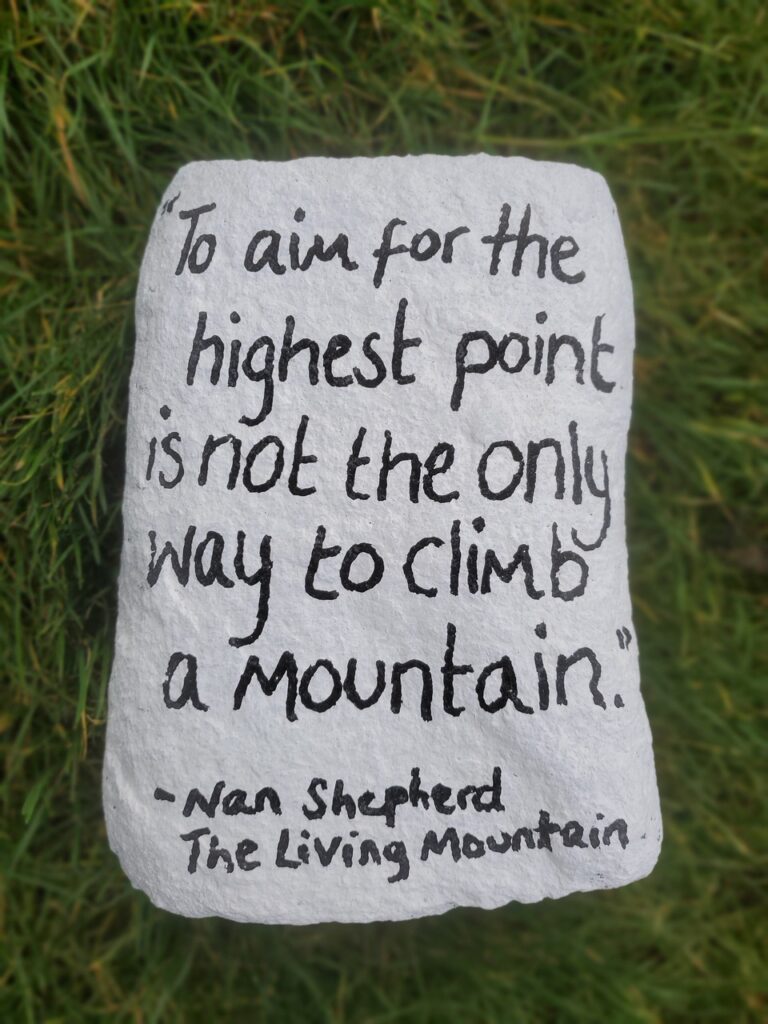 "To aim for the
highest point
is not the only
way to climb
a mountain."
- Nan Shepherd
The Living Mountain